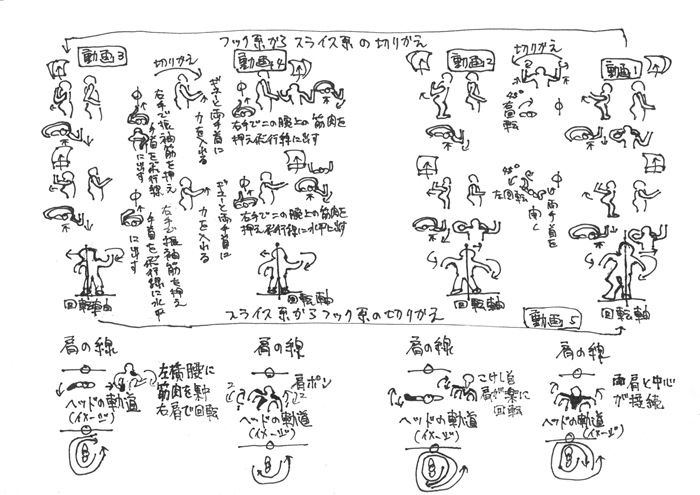 フック系から スライス系 の 切りかえ
動画3
切りかえ
動画4
動画2
切りかえ
動画1
ギューと両手首に
力を入れる
右手で振袖筋を押え
手首を飛行線
に出す
右手で二の腕上の筋肉を
押え飛行線に出す
45°
右回転
ギューと両手首に
力を入れる
右手で振袖筋を押え
手首を飛行線に水平
に出す
右手で二の腕上の筋肉を
押え飛行線に水平に出す
45°
左回転
両手首を
開く
回転軸
回転軸
回転軸
回転軸
スライス系からフック系の切りかえ
動画5
肩の線
肩の線
肩の線
肩の線
左横腰に
筋肉を集中
右肩で回転
肩ポン
こけし首
肩が楽に
回転
両肩と中心
が接続
ヘッドの軌道
(イメージ)
ヘッドの軌道
(イメージ)
ヘッドの軌道
(イメージ)
ヘッドの軌道
(イメージ)